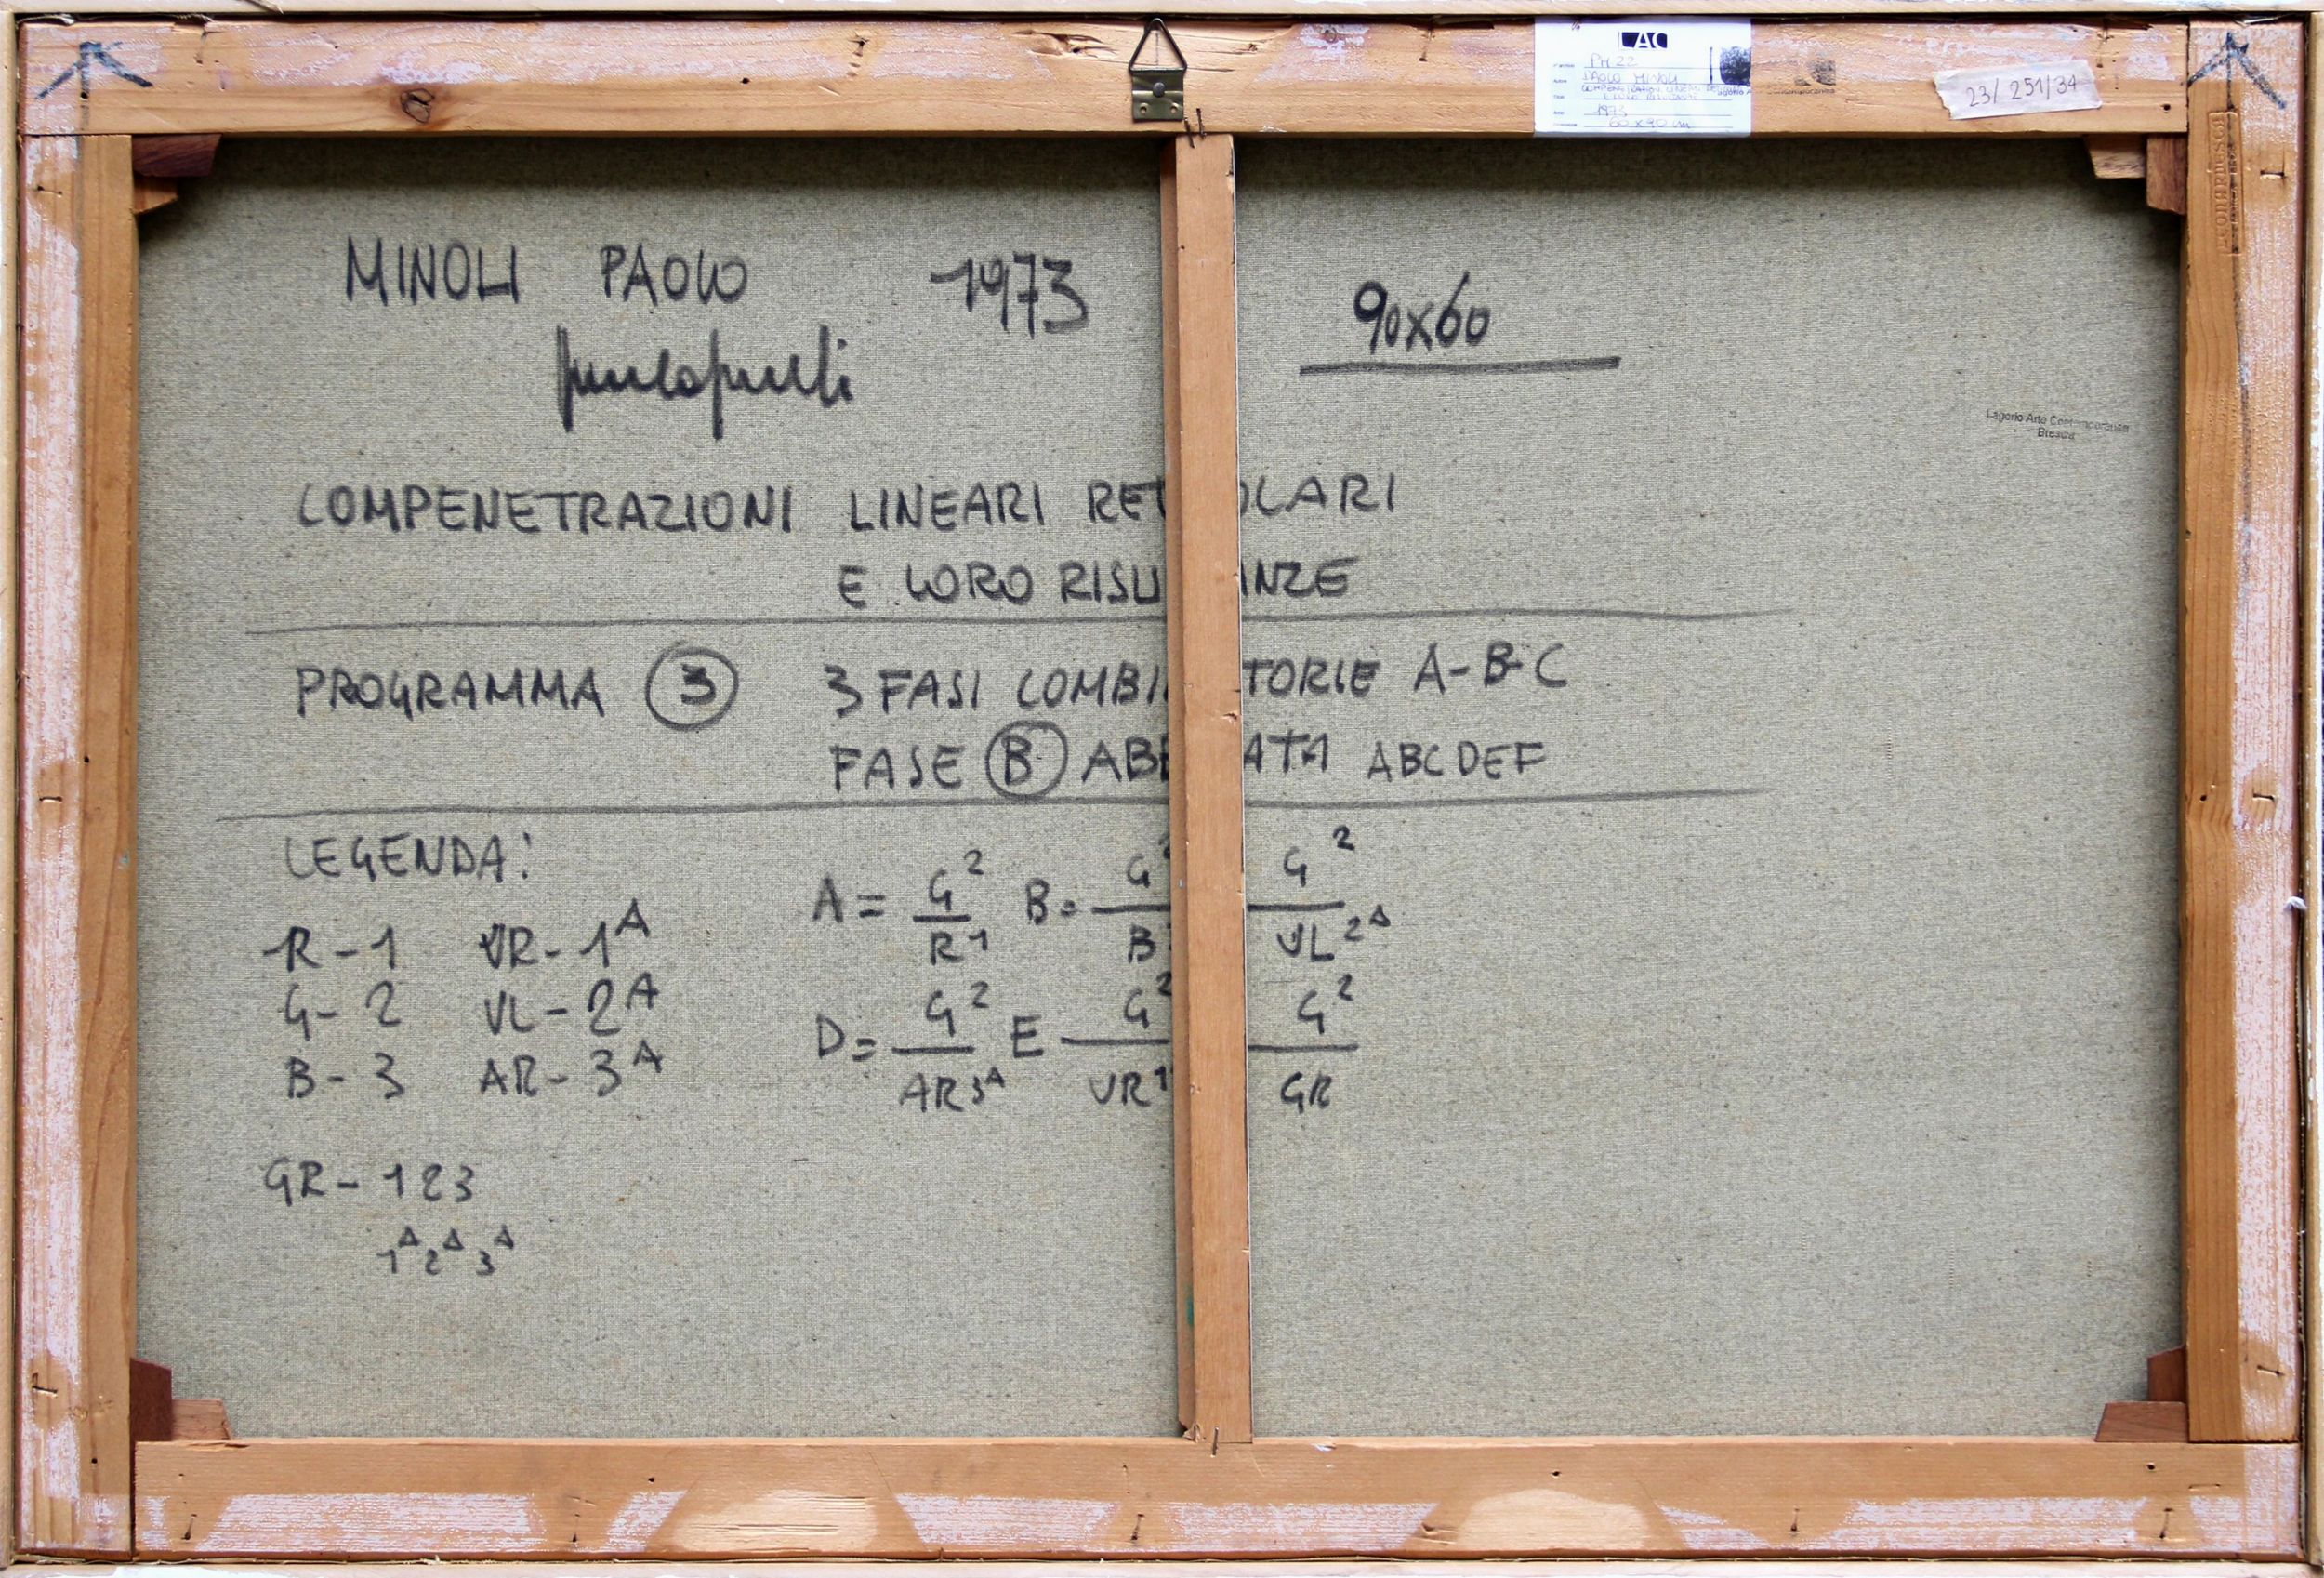 LAC
PM 22
PAOLO MINOLI
1973
60 x 90 cm
23/251/34
MINOLI PAOLO 1973
90x60
Lagorio Arte Contemporanea
Brescia
COMPENETRAZIONI LINEARI RET OLARI
E LORO RISU ANZE
PROGRAMMA 3 3 FASI COMBI TORIE A-B-C
FASE B ABB ATA ABCDEF
LEGENDA:
R-1 VR-1ᴬ
G-2 VL-2ᴬ
B-3 AR-3ᴬ
GR-123
1ᴬ2ᴬ3ᴬ
A= G²/R¹ B= G²/B G²/VL²ᴬ
D= G²/AR3ᴬ E G²/VR¹ G²/GR